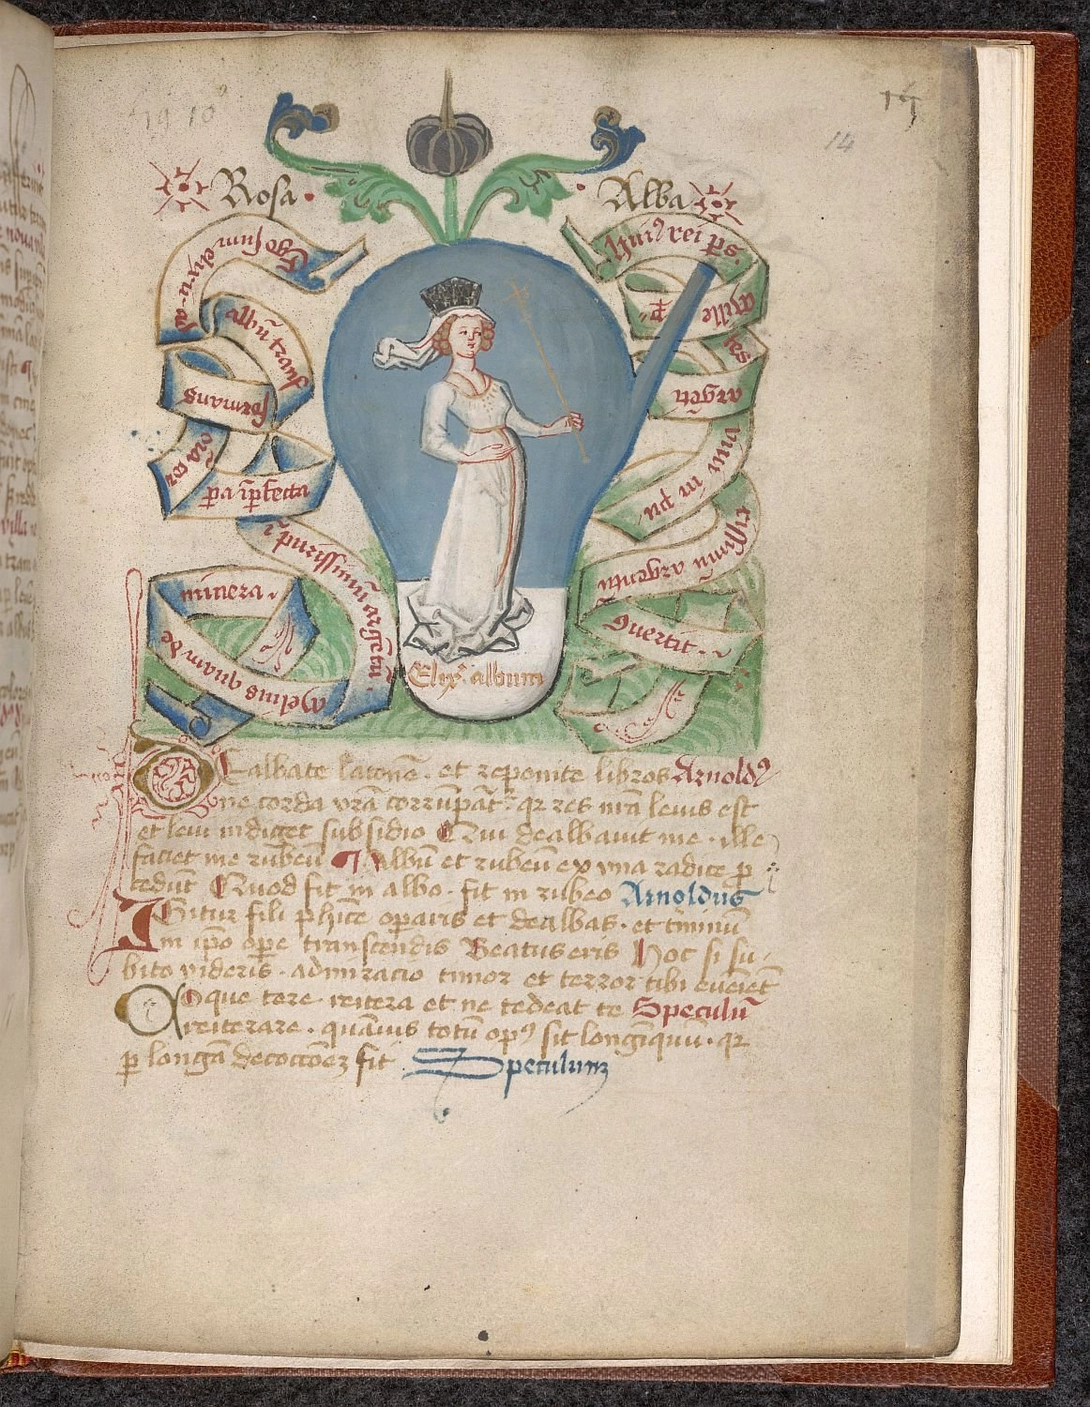 15
14
Rosa · Alba
Ego sum elixir ad
albū trans
formans
oīa cor
pa īpfecta
ī purissimū argētū
melius quam de
minera ·
Huiꝰ rei ps
mille
argēti
viui in pu
rissimū argentū
9uertit ·
Elixʳ album
Dealbate latonē · et reponite libros Arnoldꝰ
ne corda vrā corrūpāt² qr res nrā leuis est
et leui indiget subsidio Qui dealbauit me · ille
faciet me rubeū ¶ Albū et rubeū ex vna radice p
cedūt Quod fit in albo · fit in rubeo Arnoldus
Igitur fili phice operaris et dealbas · et tīminū
in ipo ope transcendis Beatus eris Hoc si su-
bito videris · admiracio timor et terror tibi eueiēt
Coque tere · reitera et ne tedeat te Speculū
reiterare · quāuis totū opꝰ sit longīquū · qr
p longā decoctōeȝ fit Speculum